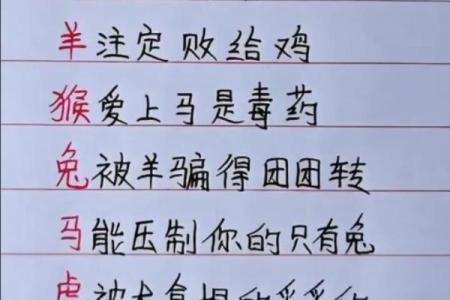 羊注定败给鸡
猴爱上马是毒药
兔被羊骗得团团转
马能压制你的只有兔
虎被